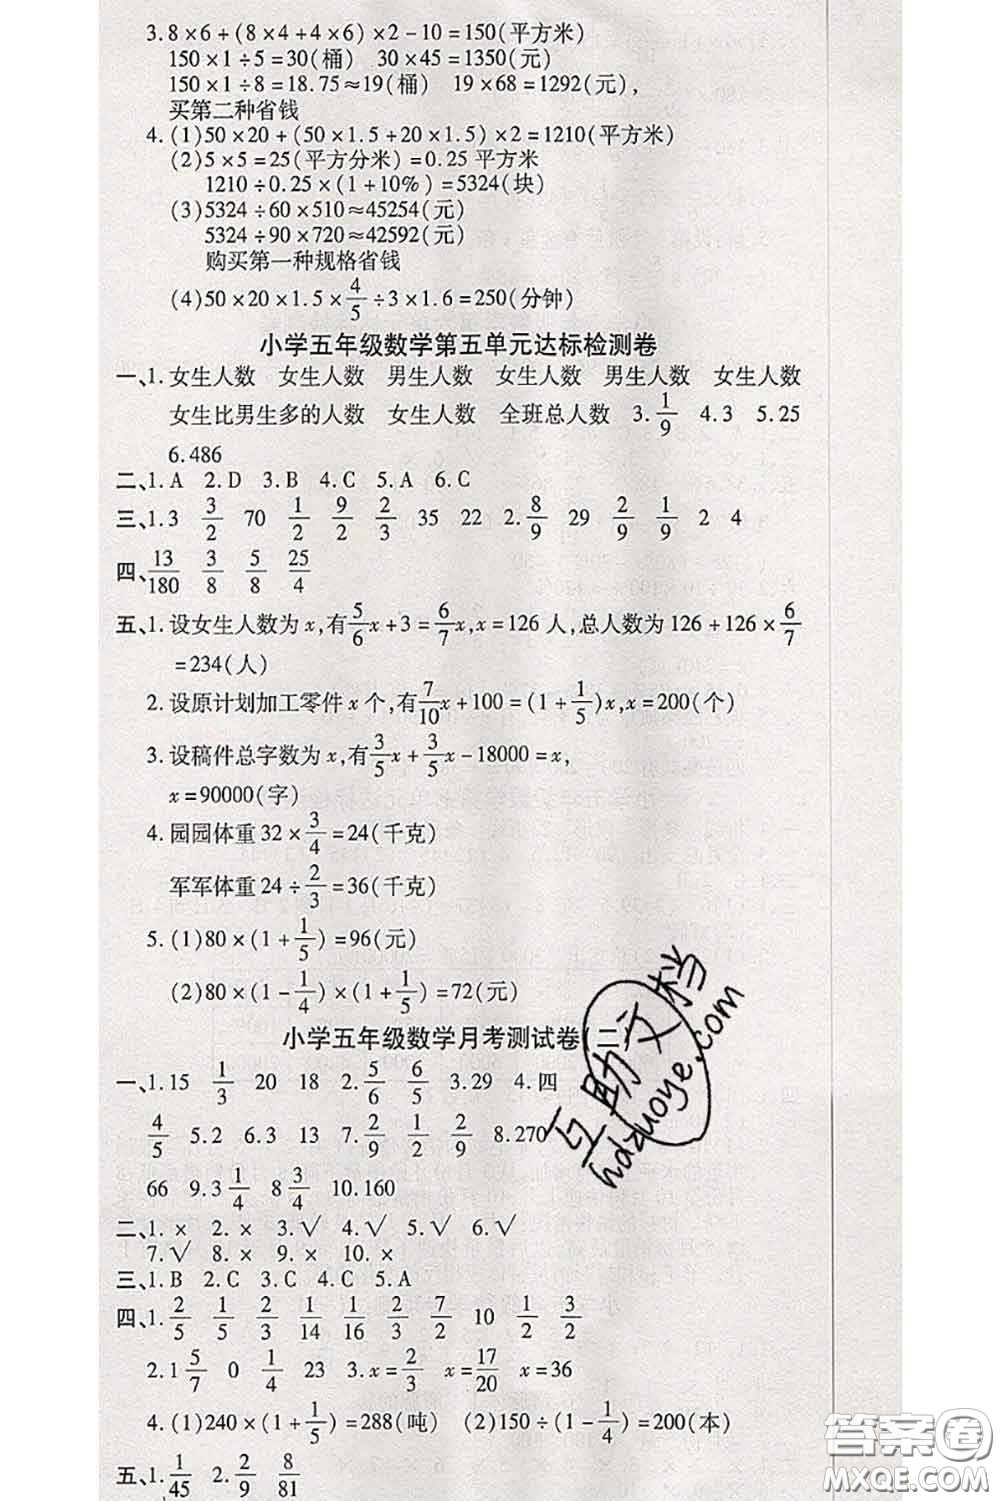 3.8×6+(8×4+4×6)×2-10=150(平方米)
150×1÷5=30(桶) 30×45=1350(元)
150×1÷8=18.75≈19(桶) 19×68=1292(元),
买第二种省钱
4.(1)50×20+(50×1.5+20×1.5)×2=1210(平方米)
(2)5×5=25(平方分米)=0.25 平方米
1210÷0.25×(1+10%)=5324(块)
(3)5324÷60×510≈45254(元)
5324÷90×720≈42592(元)
购买第一种规格省钱
(4)50×20×1.5×4/5÷3×1.6=250(分钟)
小学五年级数学第五单元达标检测卷
一、1.女生人数 女生人数 男生人数 女生人数 男生人数 女生人数
女生比男生多的人数 女生人数 全班总人数 3.1/9 4.3 5.25
6.486
二、1.A 2.D 3.B 4.C 5.A 6.C
三、1.3 3/2 70 1/2 9/2 2/3 35 22 2.8/9 29 2/9 1/9 2 4
四、13/180 3/8 5/8 25/4
五、1.设女生人数为x,有5/6x+3=6/7x,x=126人,总人数为126+126×6/7
=234(人)
2.设原计划加工零件x个,有7/10x+100=(1+1/5)x,x=200(个)
3.设稿件总字数为x,有3/5x+3/5x-18000=x,
x=90000(字)
4.园园体重32×3/4=24(千克)
军军体重24÷2/3=36(千克)
5.(1)80×(1+1/5)=96(元)
(2)80×(1-1/4)×(1+1/5)=72(元)
小学五年级数学月考测试卷(二
一、1.15 1/3 20 18 2.5/6 6/5 3.29 4.四
4/5 5.2 6.3 13 7.2/9 1/2 2/9 8.270
66 9.3 1/4 8 3/4 10.160
二、1.× 2.× 3.√ 4.√ 5.√ 6.√
7.√ 8.× 9.× 10.×
三、1.B 2.C 3.C 4.C 5.A
四、1.2/5 1/5 2/3 1/14 1/16 2/3 7/2 10 1/2 3/2
2.1 5/7 0 1/4 23 3.x=2/3 x=17/20 x=36
4.(1)240×(1+1/5)=288(吨) (2)150÷(1-1/4)=200(本)
五、1.1/45 2.2/9 8/81
互助文档
hdzuoye.com
答案圈
MXQE.COM